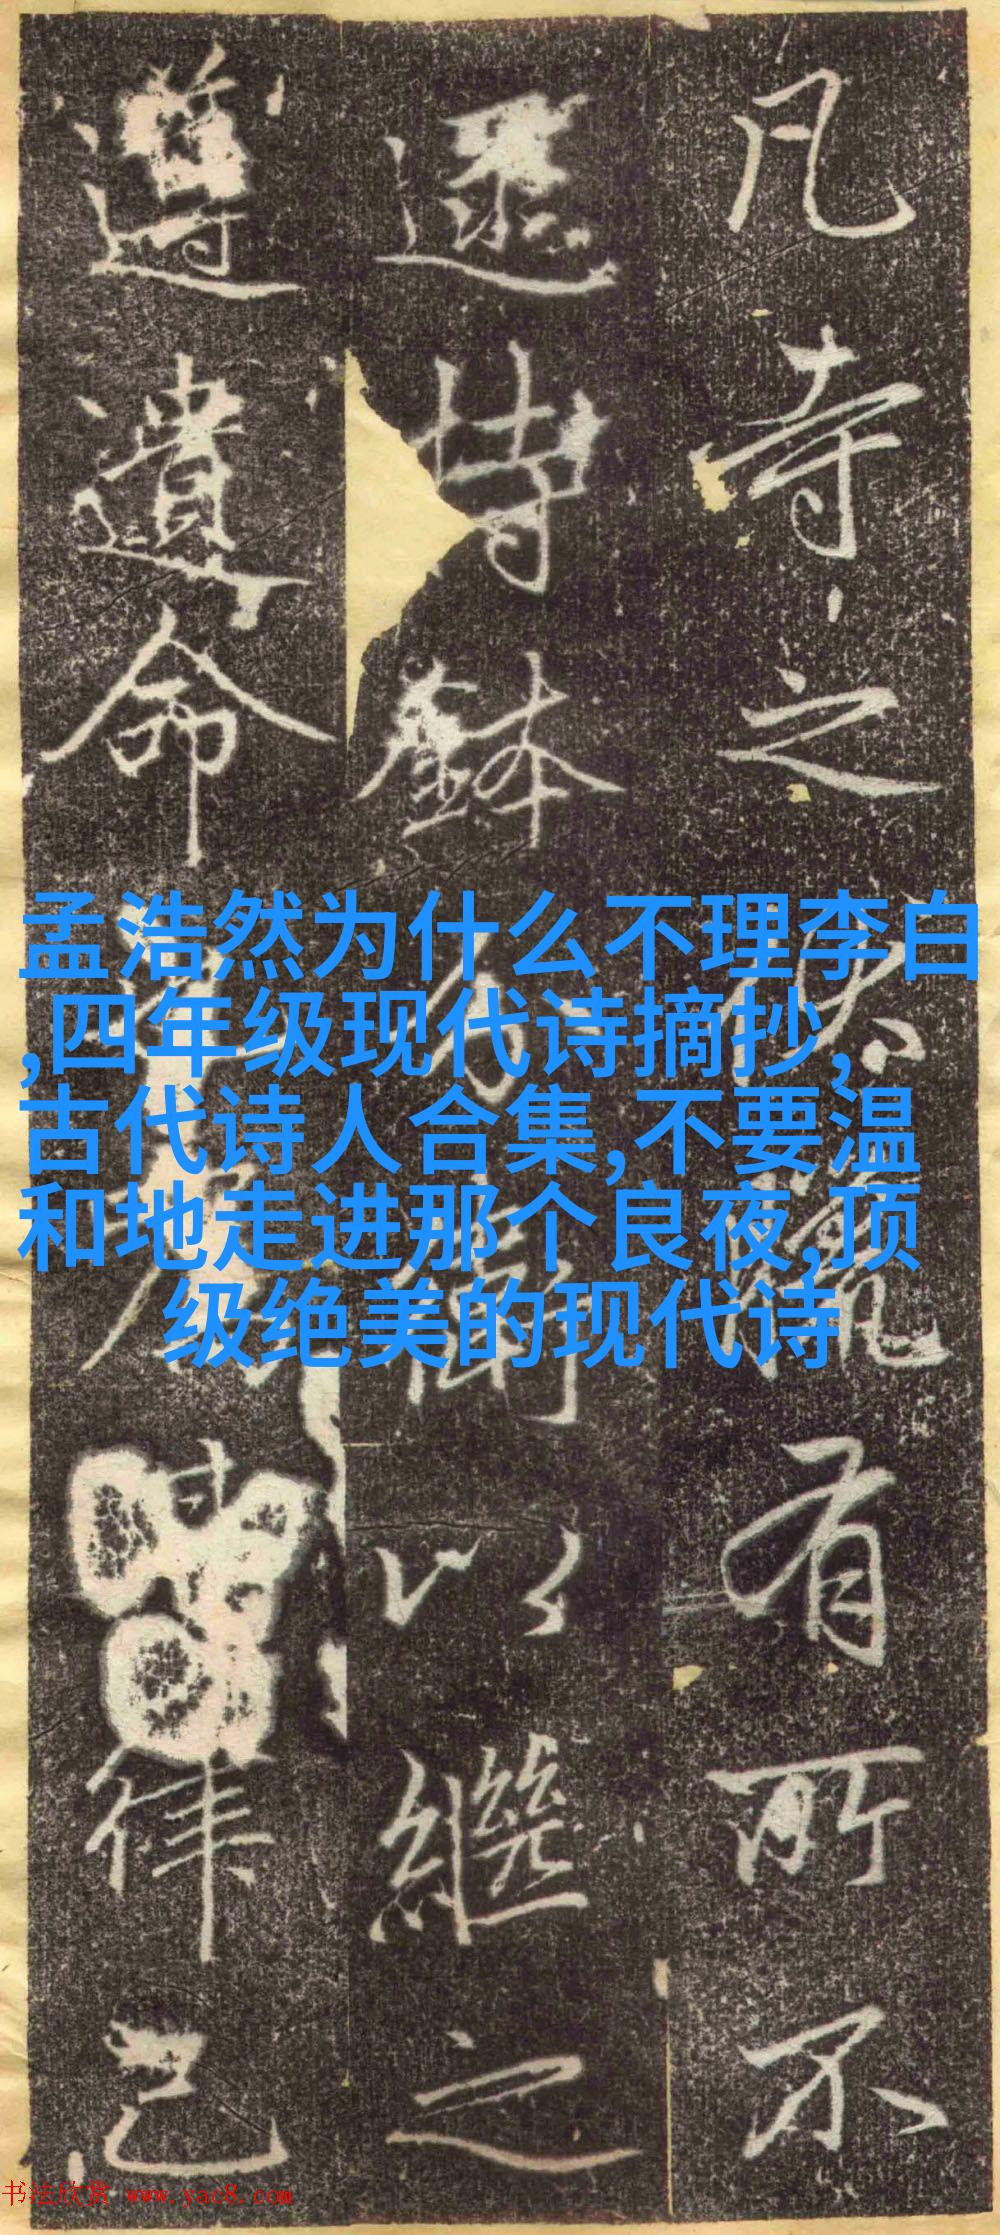 凡寺之供瓶有所不
遝持鉢乃衛以繼之
遵遺命
律己
孟浩然为什么不理李白
,四年级现代诗摘抄,
古代诗人合集,不要温
和地走进那个良夜,顶
级绝美的现代诗
书法欣赏 www.yac8.com